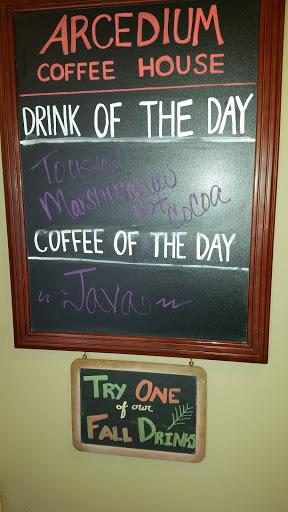 ARCEDIUM
COFFEE HOUSE
DRINK OF THE DAY
Toasted
Marshmallow
Hot Cocoa
COFFEE OF THE DAY
~Java~
TRY ONE
of our
FALL DRINKS